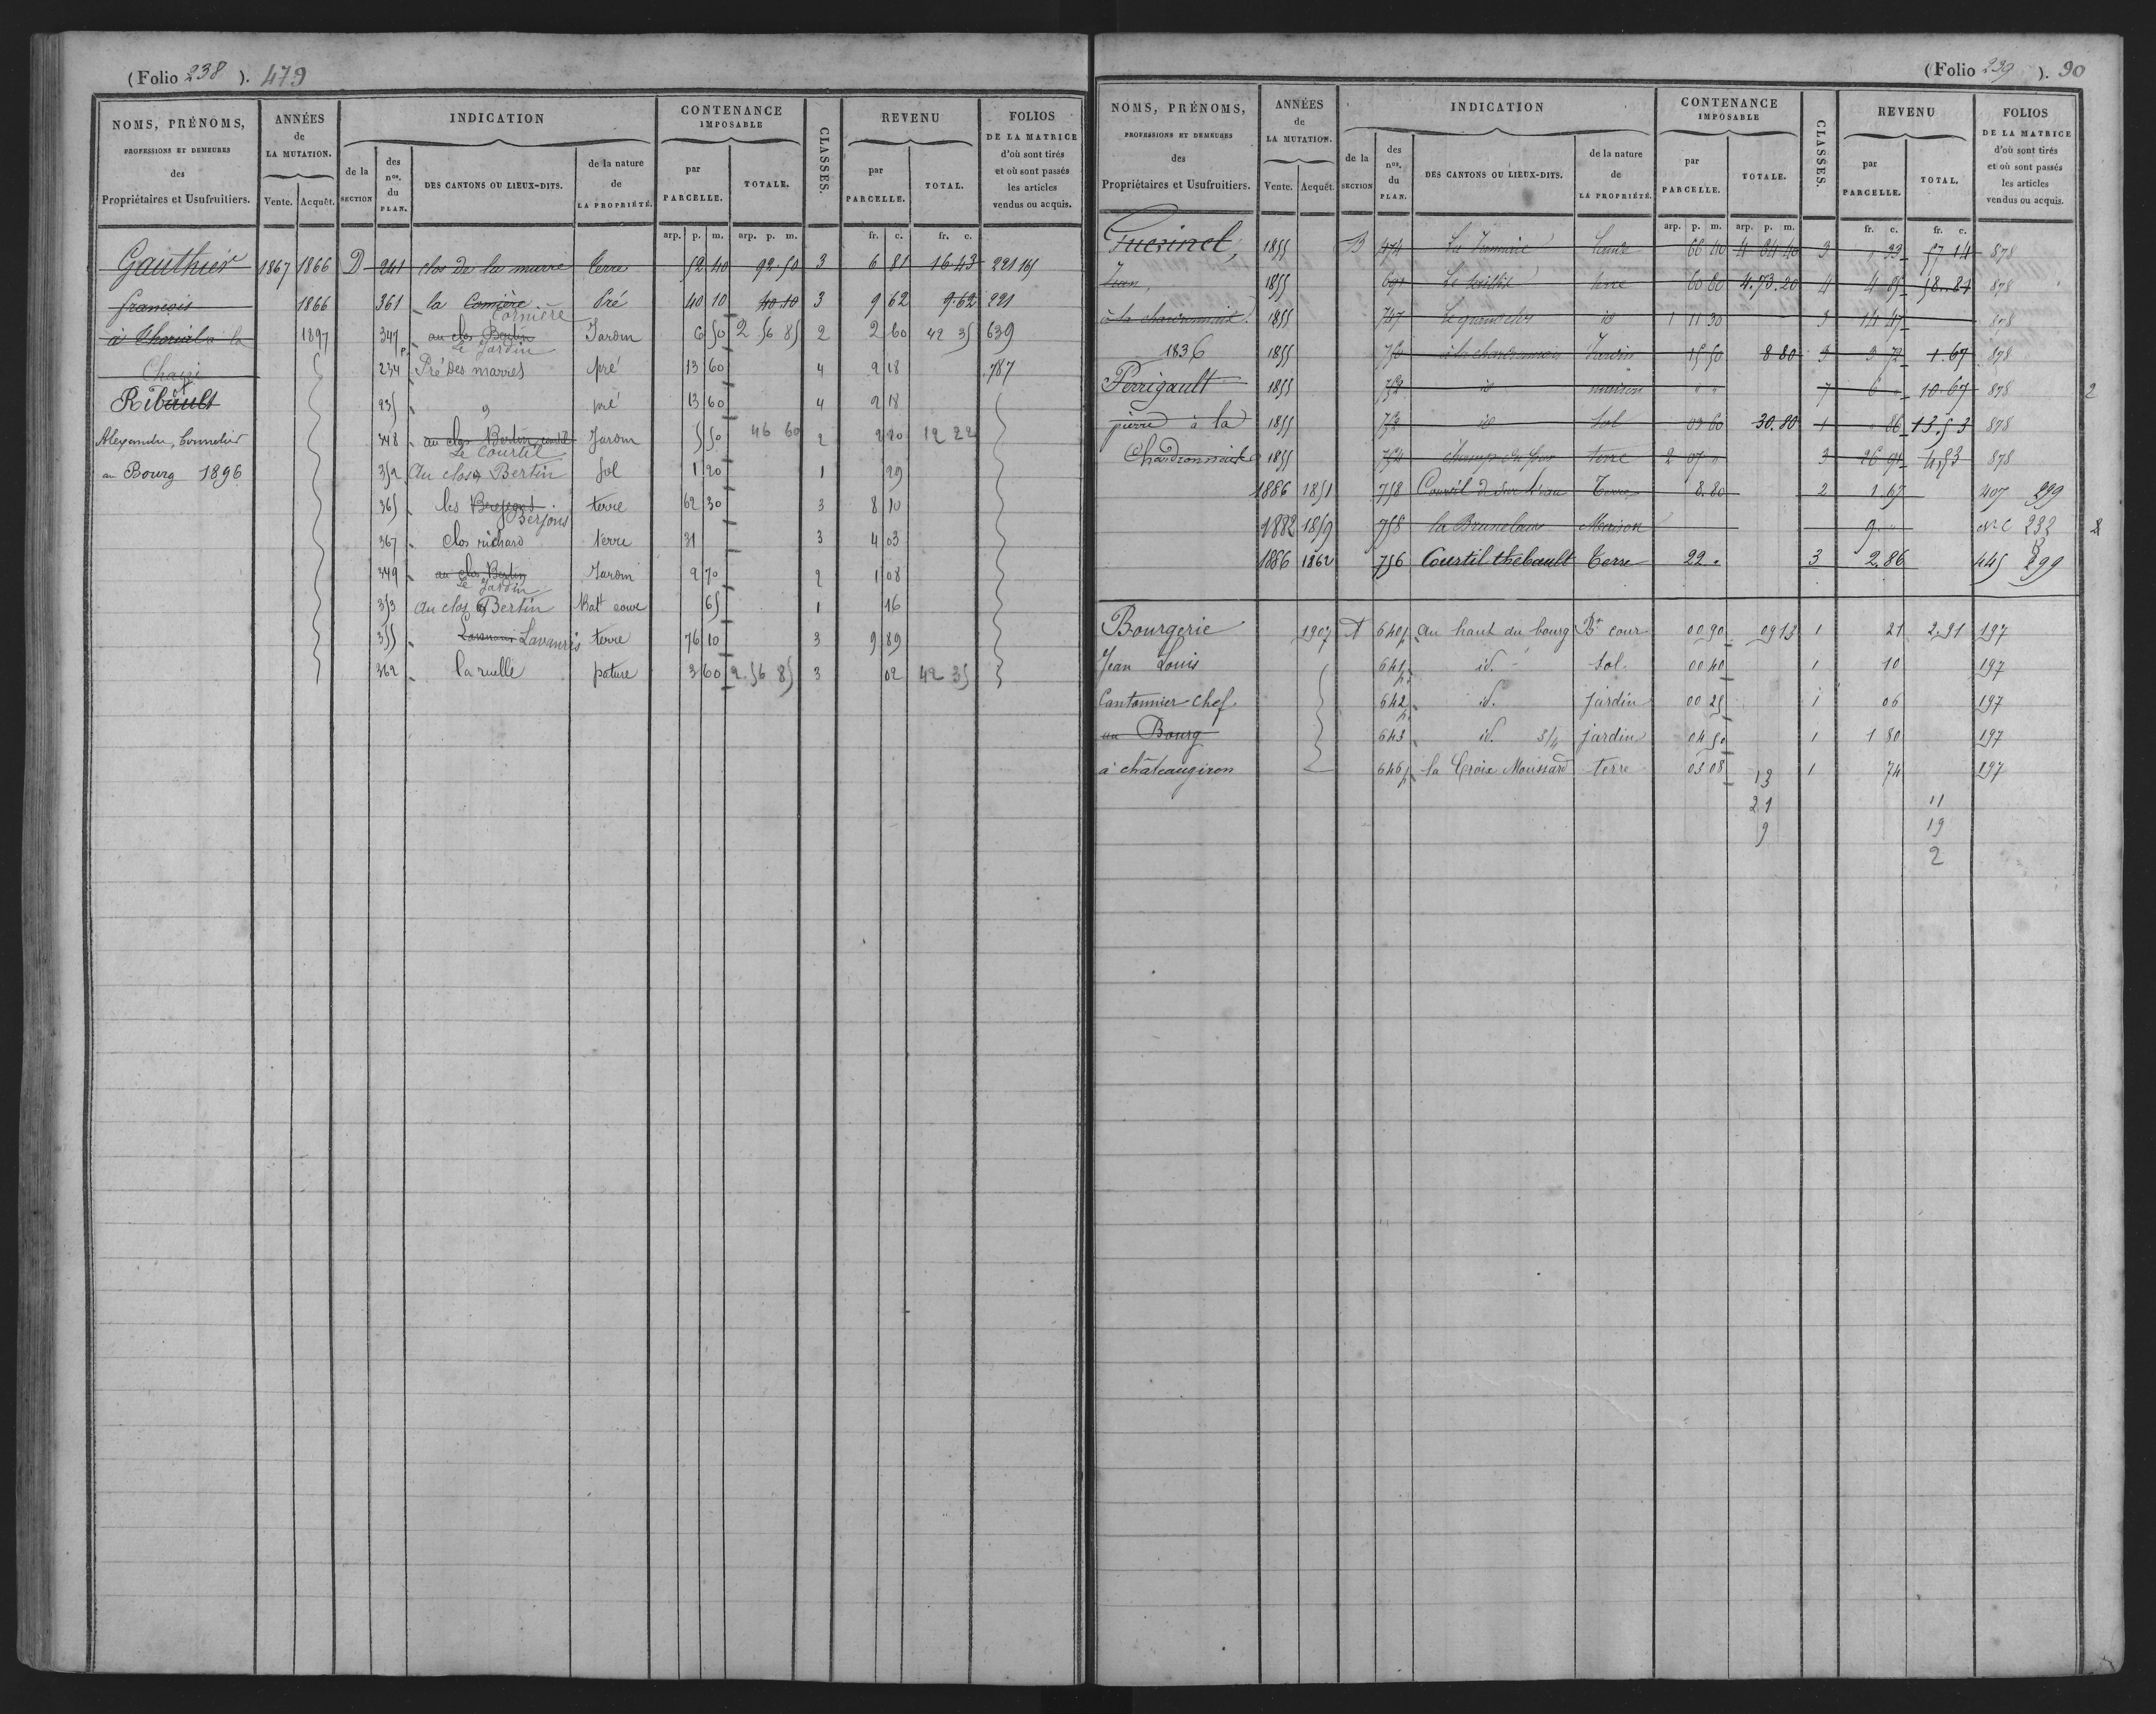 (Folio 238 ). 479
NOMS, PRÉNOMS, PROFESSIONS ET DEMEURES des Propriétaires et Usufruitiers.
ANNÉES de LA MUTATION. Vente. Acquêt.
INDICATION de la SECTION des nos. du PLAN. DES CANTONS OU LIEUX-DITS. de la nature de LA PROPRIÉTÉ.
CONTENANCE IMPOSABLE par PARCELLE. TOTALE.
CLASSES.
REVENU par PARCELLE. TOTAL.
FOLIOS DE LA MATRICE d'où sont tirés et où sont passés les articles vendus ou acquis.
arp. p. m. arp. p. m. fr. c. fr. c.
Gauthier 1867 1866 D 241 clos De la marre terre 52 40 92.50 3 6 81 16.43 221 165
françois 1866 361 la Comière Cornière Pré 40 10 40.10 3 9 62 9.62 221
à la 1897 347 p. au clos Bertin Le Jardin Jardin 6 50 2 56 85 2 2 60 42 35 639
234 Pré Des marres pré 13 60 4 2 18 787
Ribault 235 " pré 13 60 4 2 18
Alexandre, 348 au clos Bertin Le Courtil Jardin 5 50 46 60 2 2 20 12 22
au Bourg 1896 352 Au clos Bertin sol 1 20 1 29
365 les Berjons terre 62 30 3 8 10
367 Clos richard terre 31 3 4 03
349 au clos Bertin Le Jardin Jardin 2 70 2 1 08
353 Au clos Bertin Bat cour 65 1 16
355 Lavanris terre 76 10 3 9 89
362 la ruelle pature 3 60 2.56 85 3 02 42 35
(Folio 239 ). 90
NOMS, PRÉNOMS, PROFESSIONS ET DEMEURES des Propriétaires et Usufruitiers.
ANNÉES de LA MUTATION. Vente. Acquêt.
INDICATION de la SECTION des nos. du PLAN. DES CANTONS OU LIEUX-DITS. de la nature de LA PROPRIÉTÉ.
CONTENANCE IMPOSABLE par PARCELLE. TOTALE.
CLASSES.
REVENU par PARCELLE. TOTAL.
FOLIOS DE LA MATRICE d'où sont tirés et où sont passés les articles vendus ou acquis.
arp. p. m. arp. p. m. fr. c. fr. c.
1855 B 474 lande 66 40 4 84 40 3 " 33 57 14 878
Jean, 1855 691 terre 60 80 4.73.20 4 4 85 58.81 878
à la charronnais. 1855 747 Le grand clos id 1 11 30 3 14 47 878
1836 1855 à la Jardin 15 50 8 80 3 3 72 1.67 878
Perrigault 1855 752 id maison " " 7 6 " 10.67 878 2
pierre à la 1855 id Sol 03 60 30.80 1 " 86 13.53 878
1855 754 champ du four terre 2 07 " 3 26 91 4,53 878
1886 1851 758 Terre 8.80 2 1 67 407 299
1882 1859 758 Maison 9 " 232 2
1886 1862 756 Courtil thébault Terre 22 " 3 2,86 445 299
Bourgerie 1907 A 640p au haut du bourg Bt cour 00 90 09 13 1 21 2,91 197
Jean Louis 641 p. id. Sol. 00 40 1 10 197
Cantonnier-Chef. 642 p. id. jardin 00 25 1 06 197
au Bourg 643 id. 3/4 jardin 04 50 1 1 80 197
à châteaugiron 646p la Croix Moussard terre 03 08 1 74 197
13
21 11
9 19
2